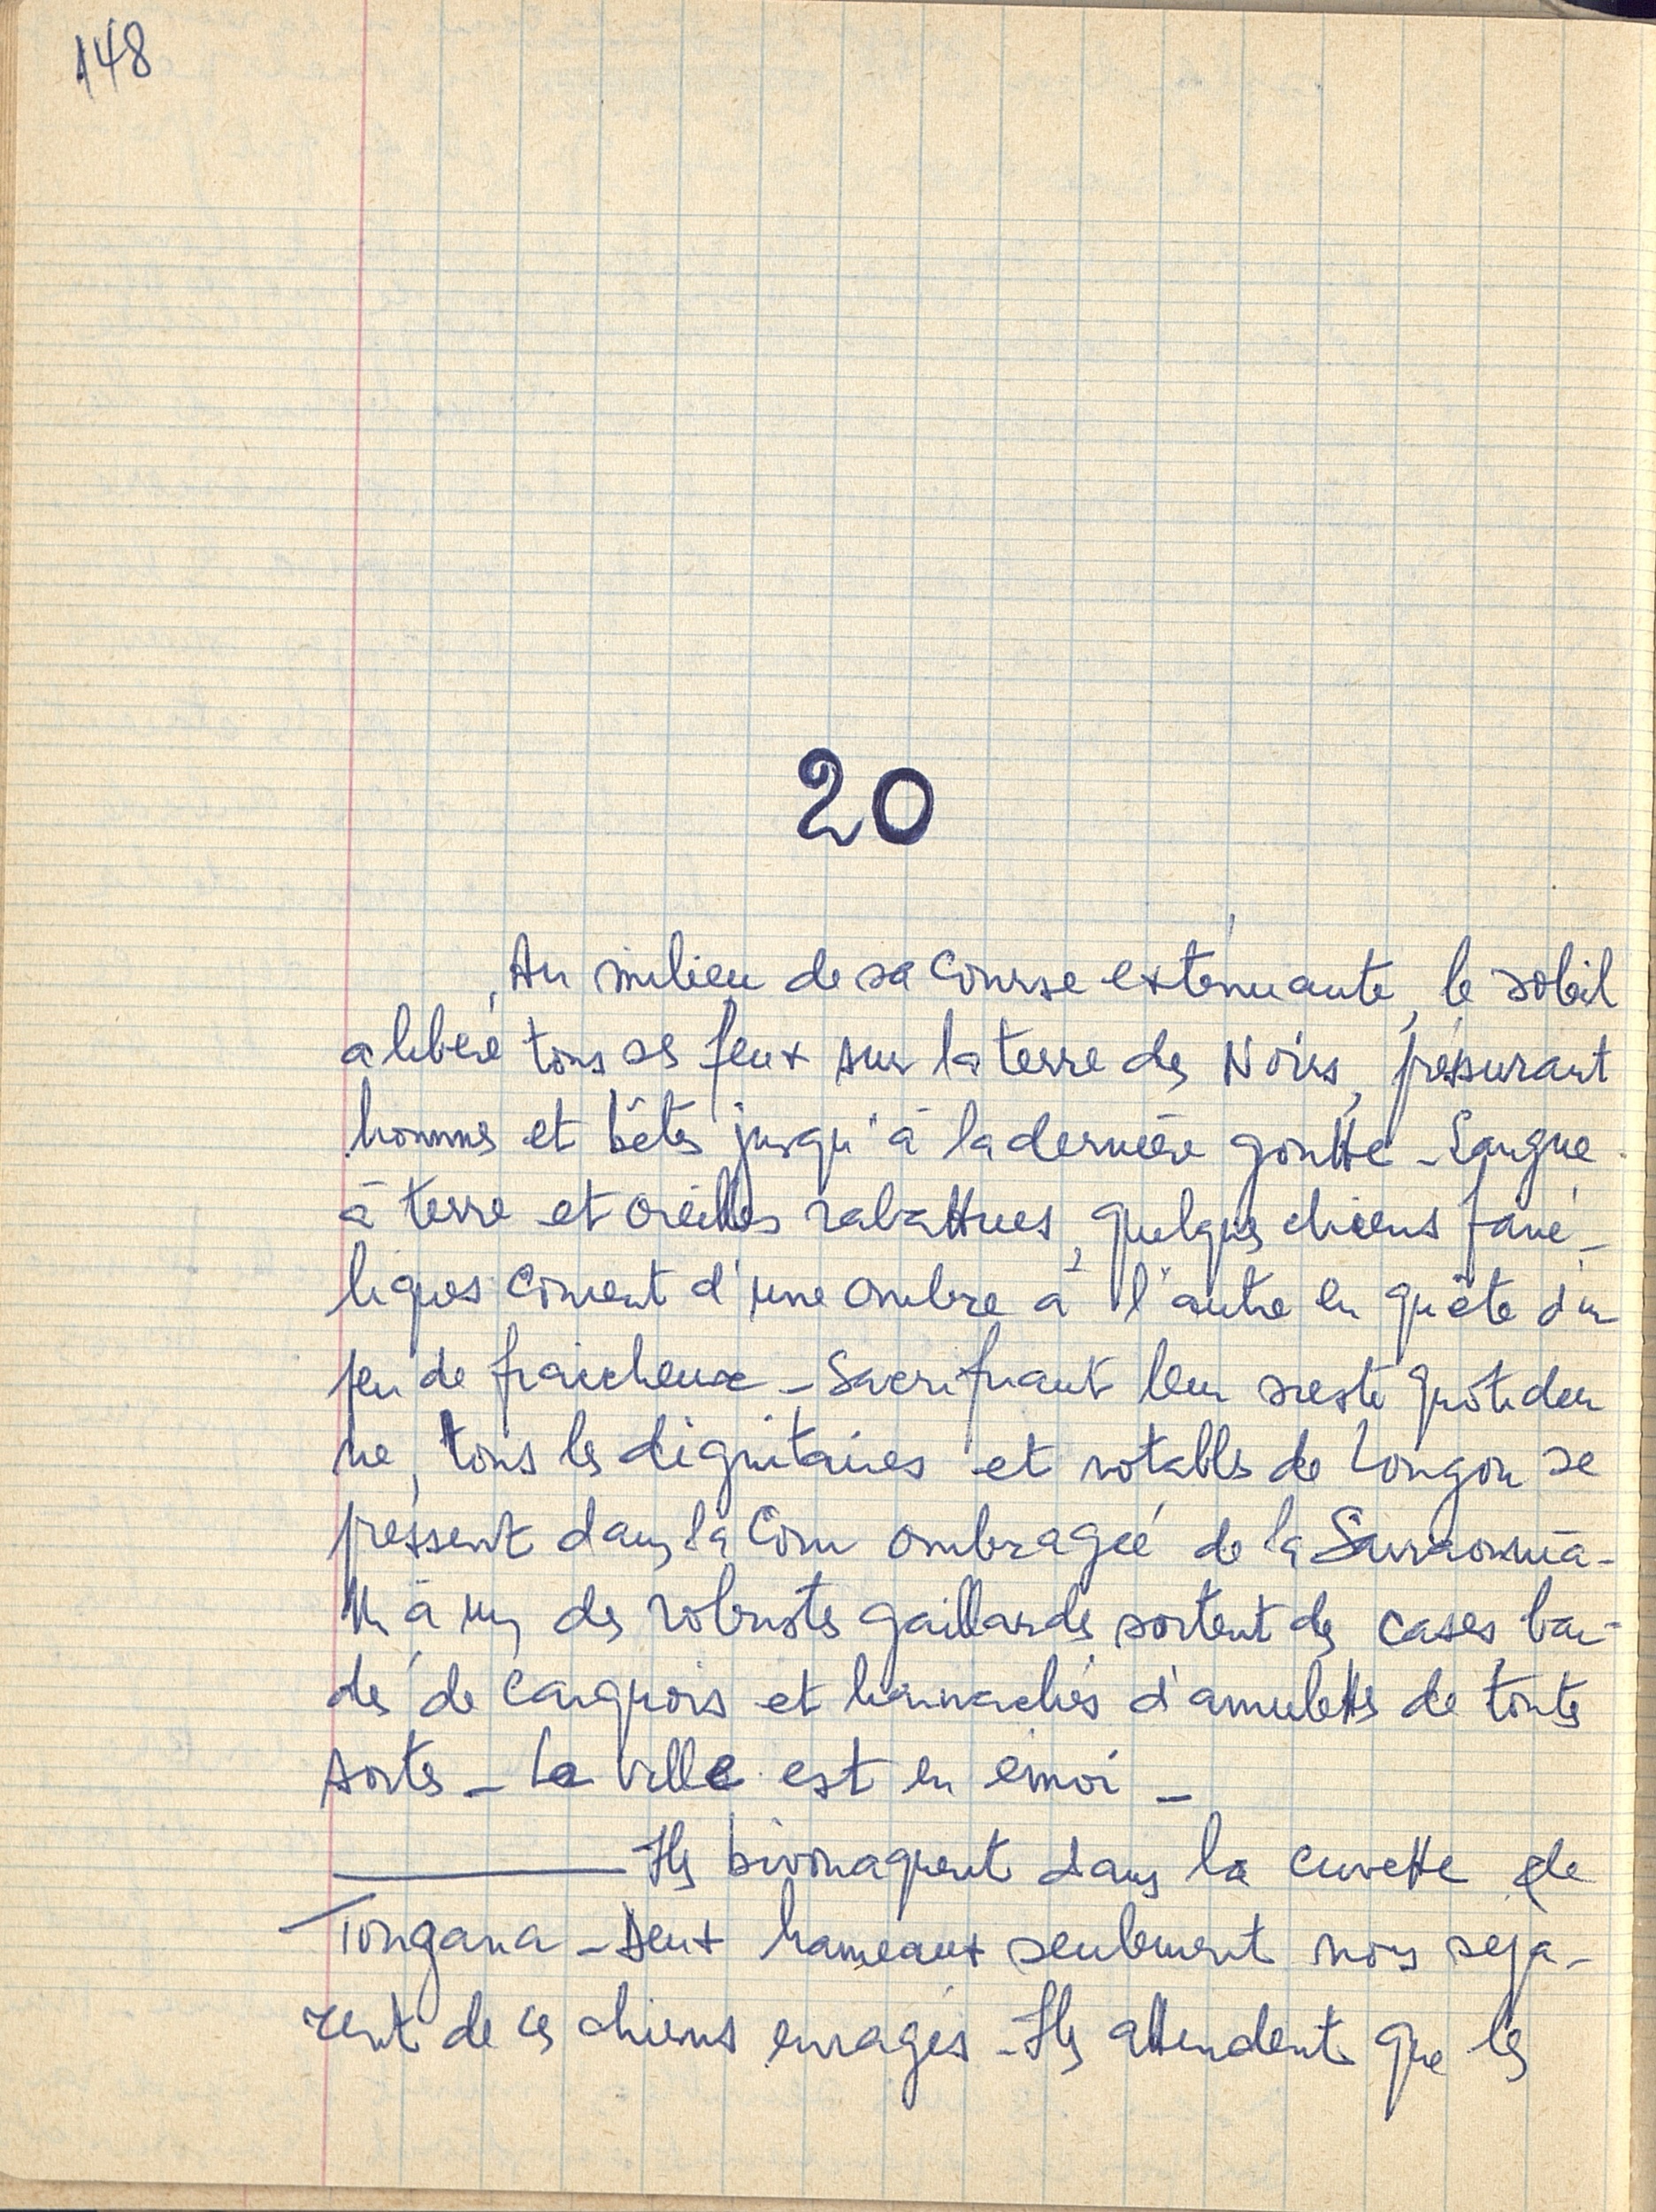 148
20
Au milieu de sa course exténuante, le soleil
a libéré tous ses feux sur la terre des Noirs, pressurant
hommes et bêtes jusqu'à la dernière goutte - Langue
à terre et oreilles rabattues, quelques chiens famé-
liques courent d'une ombre à l'autre en quête d'un
peu de fraicheur - Sacrifiant leur sieste quotidien
ne, tous les dignitaires et notables de Longon se
pressent dans la Cour ombragée de la
Un à un, des robustes gaillards sortent des cases, bar-
dés de carquois et harnachés d'amulettes de toutes
sortes - La ville est en émoi -
— Ils bivouaquent dans la cuvette de
Tongana - Deux hameaux seulement nous sépa-
rent de ces chiens enragés - Ils attendent que les